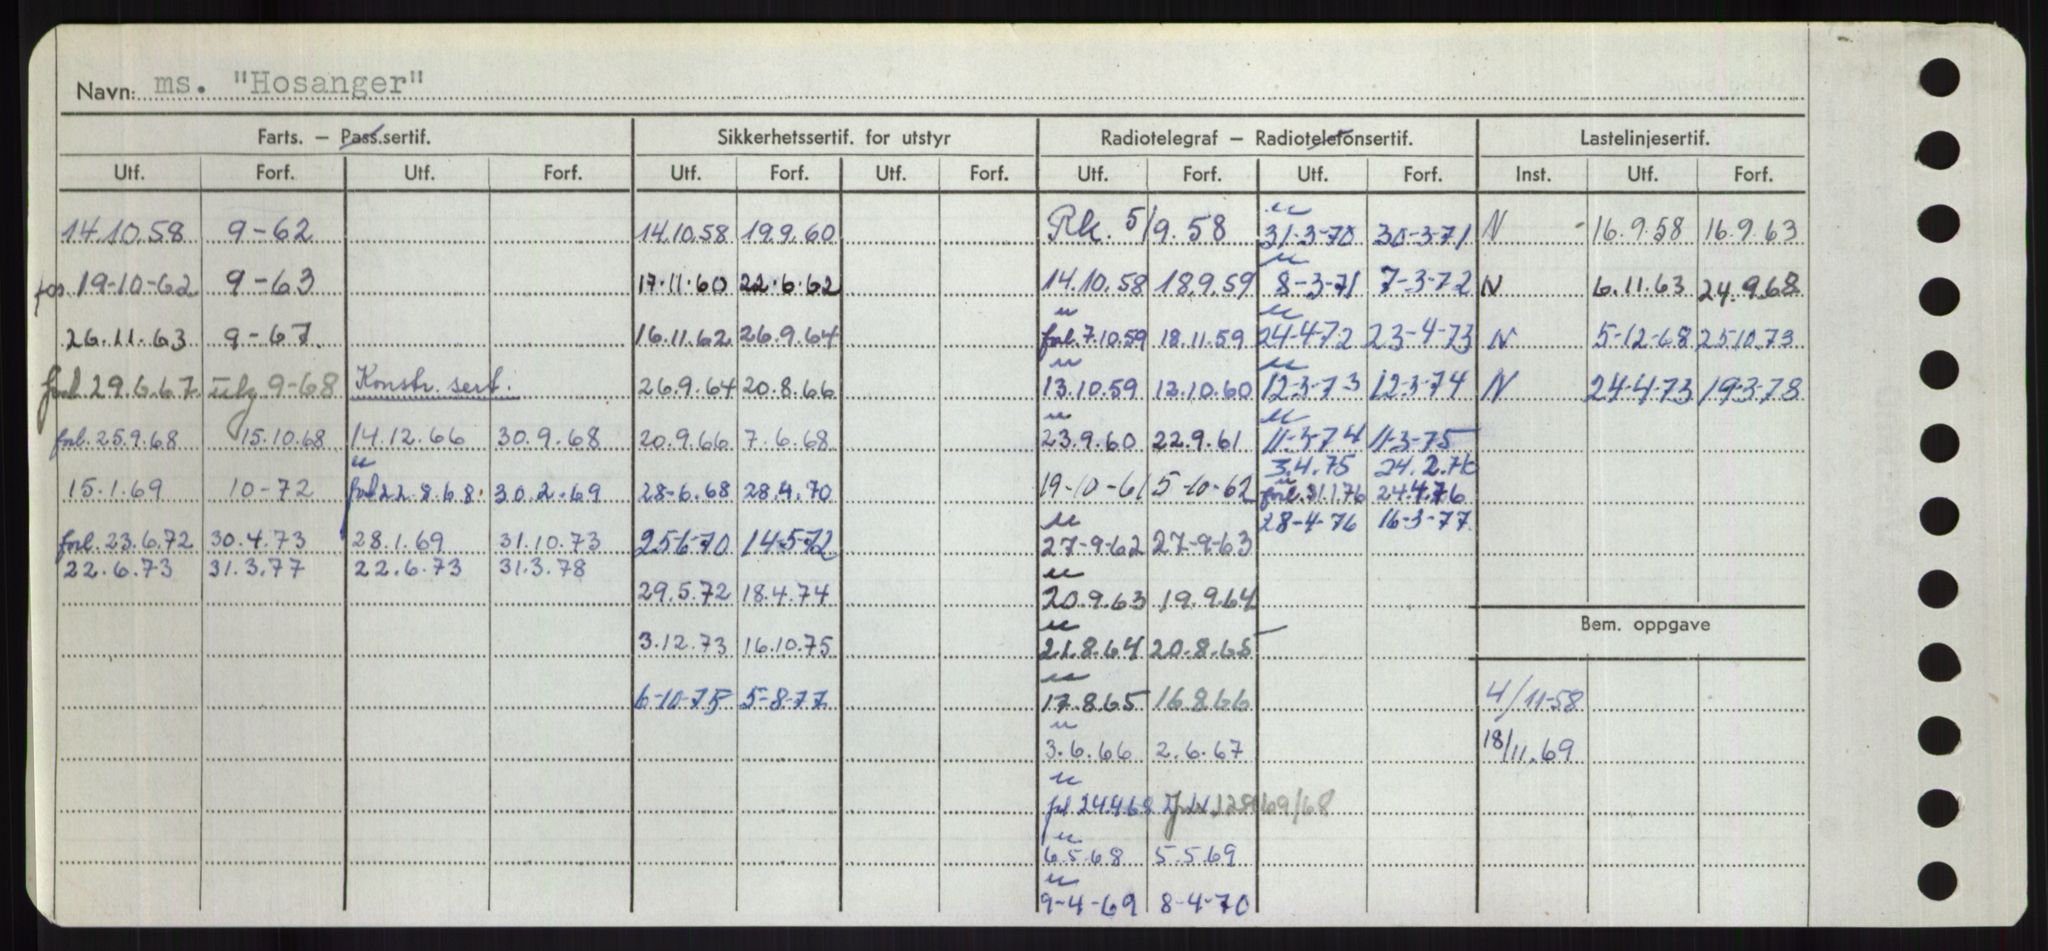 Navn: ms. "Hosanger"
Farts. — Pass.sertif. Sikkerhetssertif. for utstyr Radiotelegraf — Radiotelefonsertif. Lastelinjesertif.
Utf. Forf. Utf. Forf. Utf. Forf. Utf. Forf. Utf. Forf. Utf. Forf. Inst. Utf. Forf.
14.10.58 9-62 14.10.58 19.9.60 Rk. 5/9.58 u 31-3-70 30-3-71 N 16.9.58 16.9.63
19-10-62 9-63 17.11.60 22.6.62 14.10.58 18.9.59 u 8-3-71 7-3-72 N 6.11.63 24.9.68
26.11.63 9-67 16.11.62 26.9.64 u forl. 7.10.59 18.11.59 u 24-4-72 23-4-73 N 5-12-68 25.10.73
forl. 29.6.67 9-68 Konstr. sert. 26.9.64 20.8.66 u 13.10.59 12.10.60 u 12-3-73 12-3-74 N 24-4-73 19-3-78
forl. 25.9.68 15.10.68 14.12.66 30.9.68 20.9.66 7.6.68 u 23.9.60 22.9.61 u 11-3-74 11-3-75
3.4.75 24.2.76
15.1.69 10-72 u forl 22.8.68. 30.2.69 28-6.68 28.4.70 19-10-61 5-10-62 u forl. 31.1.76 24.4.76
28-4-76 16-3-77
forl. 23.6.72 30.4.73 28.1.69 31.10.73 25-6-70 14-5-72 u 27-9-62 27-9-63
22.6.73 31.3.77 22.6.73 31.3.78
29.5.72 18.4.74 u 20.9.63 19.9.64
Bem. oppgave
3.12.73 16.10.75 u 21.8.64 20.8.65
6-10-75 5-8-77 u 17.8.65 16.8.66 4/11-58
u 3.6.66 2.6.67 18/11.69
u 24.4.68
u 6.5.68 5.5.69
u 9-4-69 8-4-70